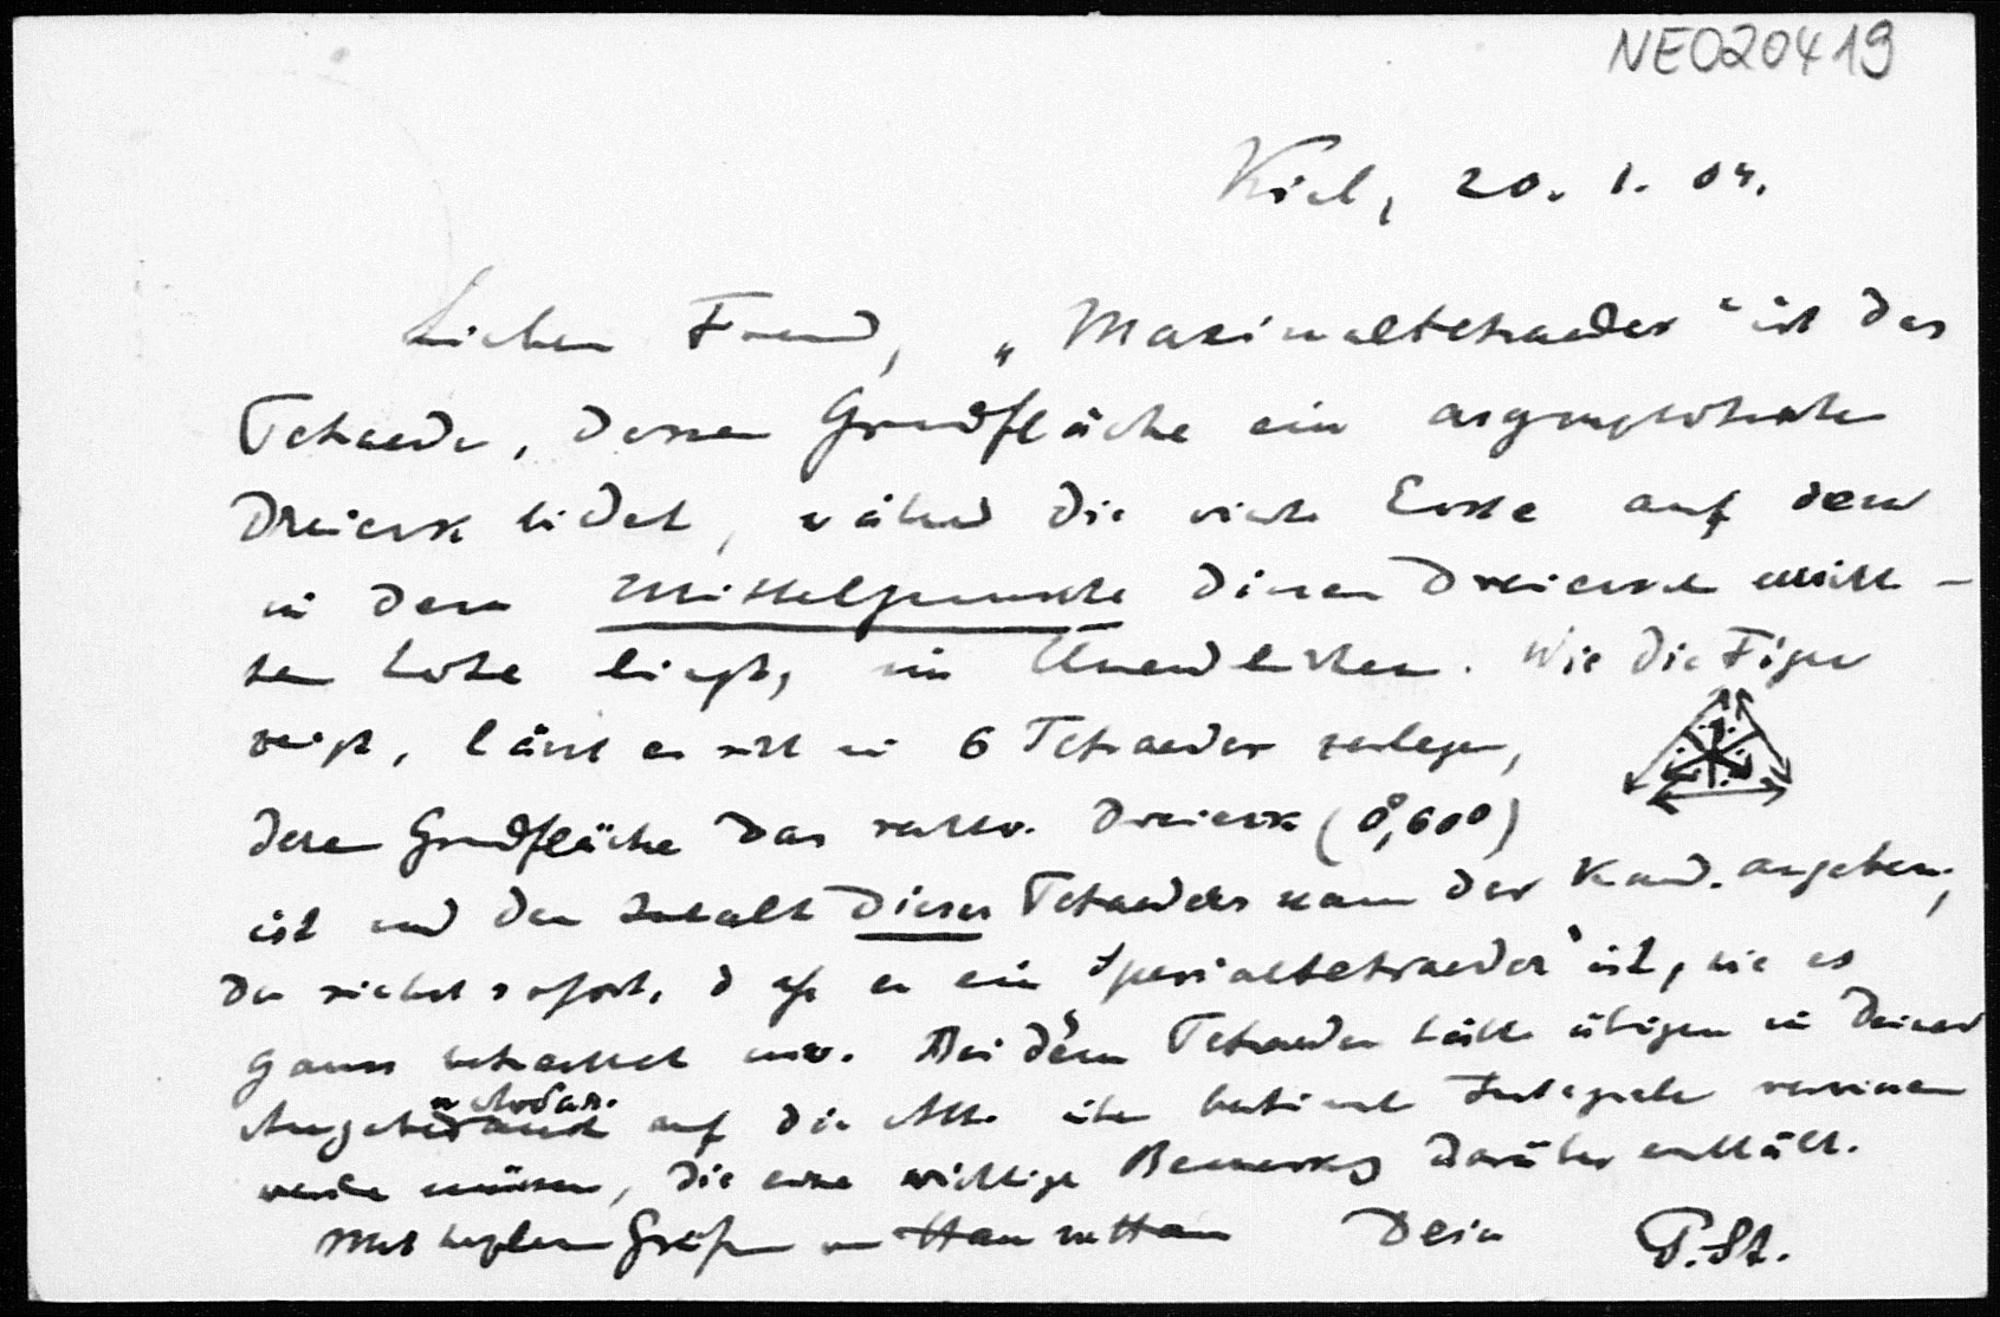 NE020419
Kiel, 20. 1. 04.
Lieber Freund, „Maximaltetraeder" ist das
Tetraeder, dessen Grundfläche ein asymptotisches
Dreieck bildet, während die vierte Ecke auf dem
in dem Mittelpunkte dieses Dreiecks errich-
teten Lote liegt, im Unendlichen. Wie die Figur
zeigt, lässt es sich in 6 Tetraeder zerlegen,
deren Grundfläche das rechtw. Dreieck (0, 60°)
ist und den Inhalt dieses Tetraeders kann der Kand. angeben;
Du siehst sofort, daß es ein Spezialtetraeder ist, wie es
Gauss betrachtet Bei dem Tetraeder hätte übrigens in Deinen
auf die Abh. über bestimmte Integrale verwiesen
werden müssen, die eine wichtige Bemerkg darüber enthält.
Mit herzlichen Grüßen von Haus zu Haus Dein P. St.